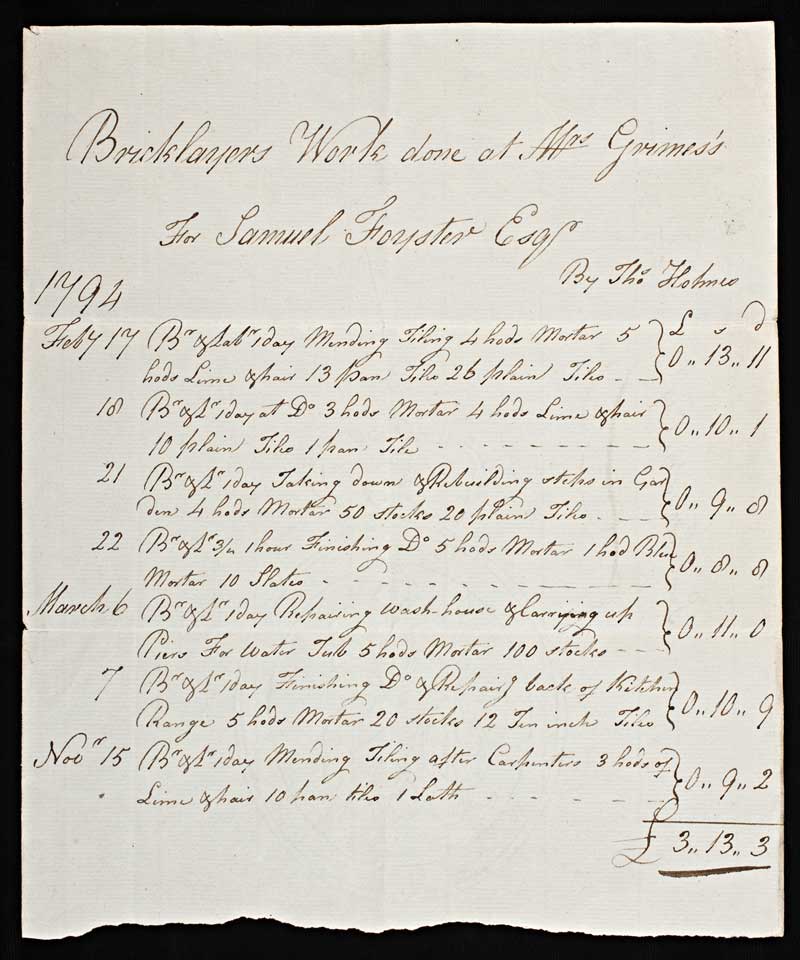 Bricklayers Work done at Mrs Grimes's
For Samuel Foyster Esqr
By Thos Holmes
1794
£ s d
Feby 17 Br & Labr 1 day Mending Tiling 4 hods Mortar 5
hods Lime & hair 13 pan Tiles 26 plain Tiles - - 0 „ 13 „ 11
18 Br & Lr 1 day at Do 3 hods Mortar 4 hods Lime & hair
10 plain Tiles 1 pan Tile - - - - - - - 0 „ 10 „ 1
21 Br & Lr 1 day Taking down & Rebuilding steps in Gar
den 4 hods Mortar 50 stocks 20 plain Tiles - - - 0 „ 9 „ 8
22 Br & Lr 3/4 1 hour Finishing Do 5 hods Mortar 1 hod Blue
Mortar 10 Slates - - - - - - - - - 0 „ 8 „ 8
March 6 Br & Lr 1 day Repairing wash-house & Carrying up
Piers For Water Tub 5 hods Mortar 100 stocks - - - 0 „ 11 „ 0
7 Br & Lr 1 day Finishing Do & Repairg back of Kitchen
Range 5 hods Mortar 20 stocks 12 Ten inch Tiles 0 „ 10 „ 9
Novr 15 Br & Lr 1 day Mending Tiling after Carpenters 3 hods of
Lime & hair 10 pan tiles 1 Lath - - - - - 0 „ 9 „ 2
£ 3 „ 13 „ 3